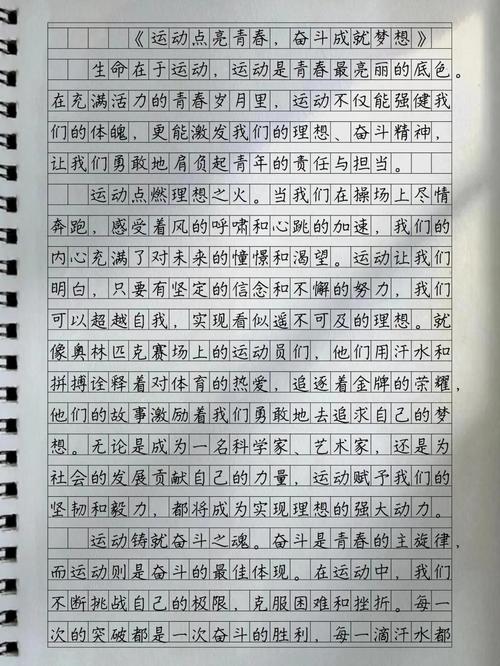 《运动点亮青春，奋斗成就梦想》
生命在于运动，运动是青春最亮丽的底色。
在充满活力的青春岁月里，运动不仅能强健我
们的体魄，更能激发我们的理想、奋斗精神，
让我们勇敢地肩负起青年的责任与担当。
运动点燃理想之火。当我们在操场上尽情
奔跑，感受着风的呼啸和心跳的加速，我们的
内心充满了对未来的憧憬和渴望。运动让我们
明白，只要有坚定的信念和不懈的努力，我们
可以超越自我，实现看似遥不可及的理想。就
像奥林匹克赛场上的运动员们，他们用汗水和
拼搏诠释着对体育的热爱，追逐着金牌的荣耀，
他们的故事激励着我们勇敢地去追求自己的梦
想。无论是成为一名科学家、艺术家，还是为
社会的发展贡献自己的力量，运动赋予我们的
坚韧和毅力，都将成为实现理想的强大动力。
运动铸就奋斗之魂。奋斗是青春的主旋律，
而运动则是奋斗的最佳体现。在运动中，我们
不断挑战自己的极限，克服困难和挫折。每一
次的突破都是一次奋斗的胜利，每一滴汗水都